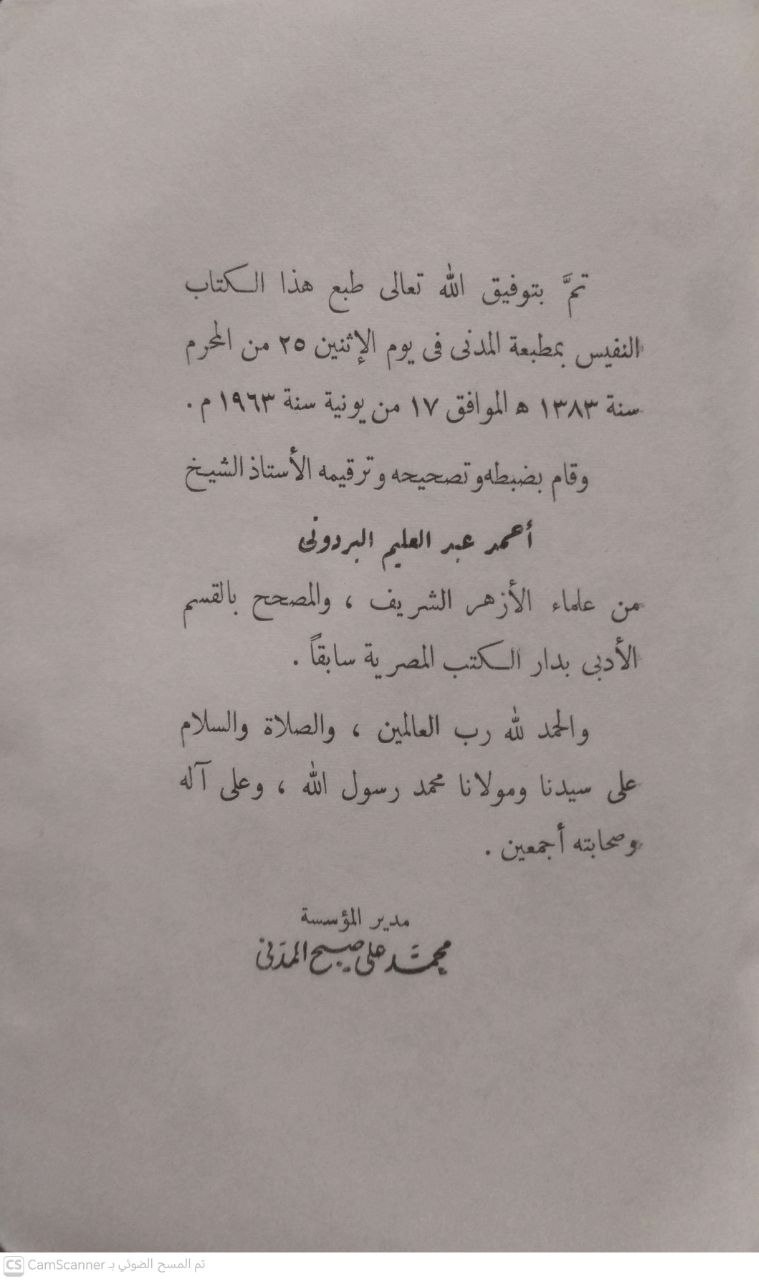 تمَّ بتوفيق الله تعالى طبع هذا الكتاب
النفيس بمطبعة المدنى فى يوم الإثنين ٢٥ من المحرم
سنة ١٣٨٣ ه الموافق ١٧ من يونية سنة ١٩٦٣ م .
وقام بضبطه وتصحيحه وترقيمه الأستاذ الشيخ
أحمد عبد العليم البردونى
من علماء الأزهر الشريف ، والمصحح بالقسم
الأدبى بدار الكتب المصرية سابقاً .
والحمد لله رب العالمين ، والصلاة والسلام
على سيدنا ومولانا محمد رسول الله ، وعلى آله
وصحابته أجمعين .
مدير المؤسسة
محمَّد على صبح المدَنى
CS CamScanner تم المسح الضوئي بـ